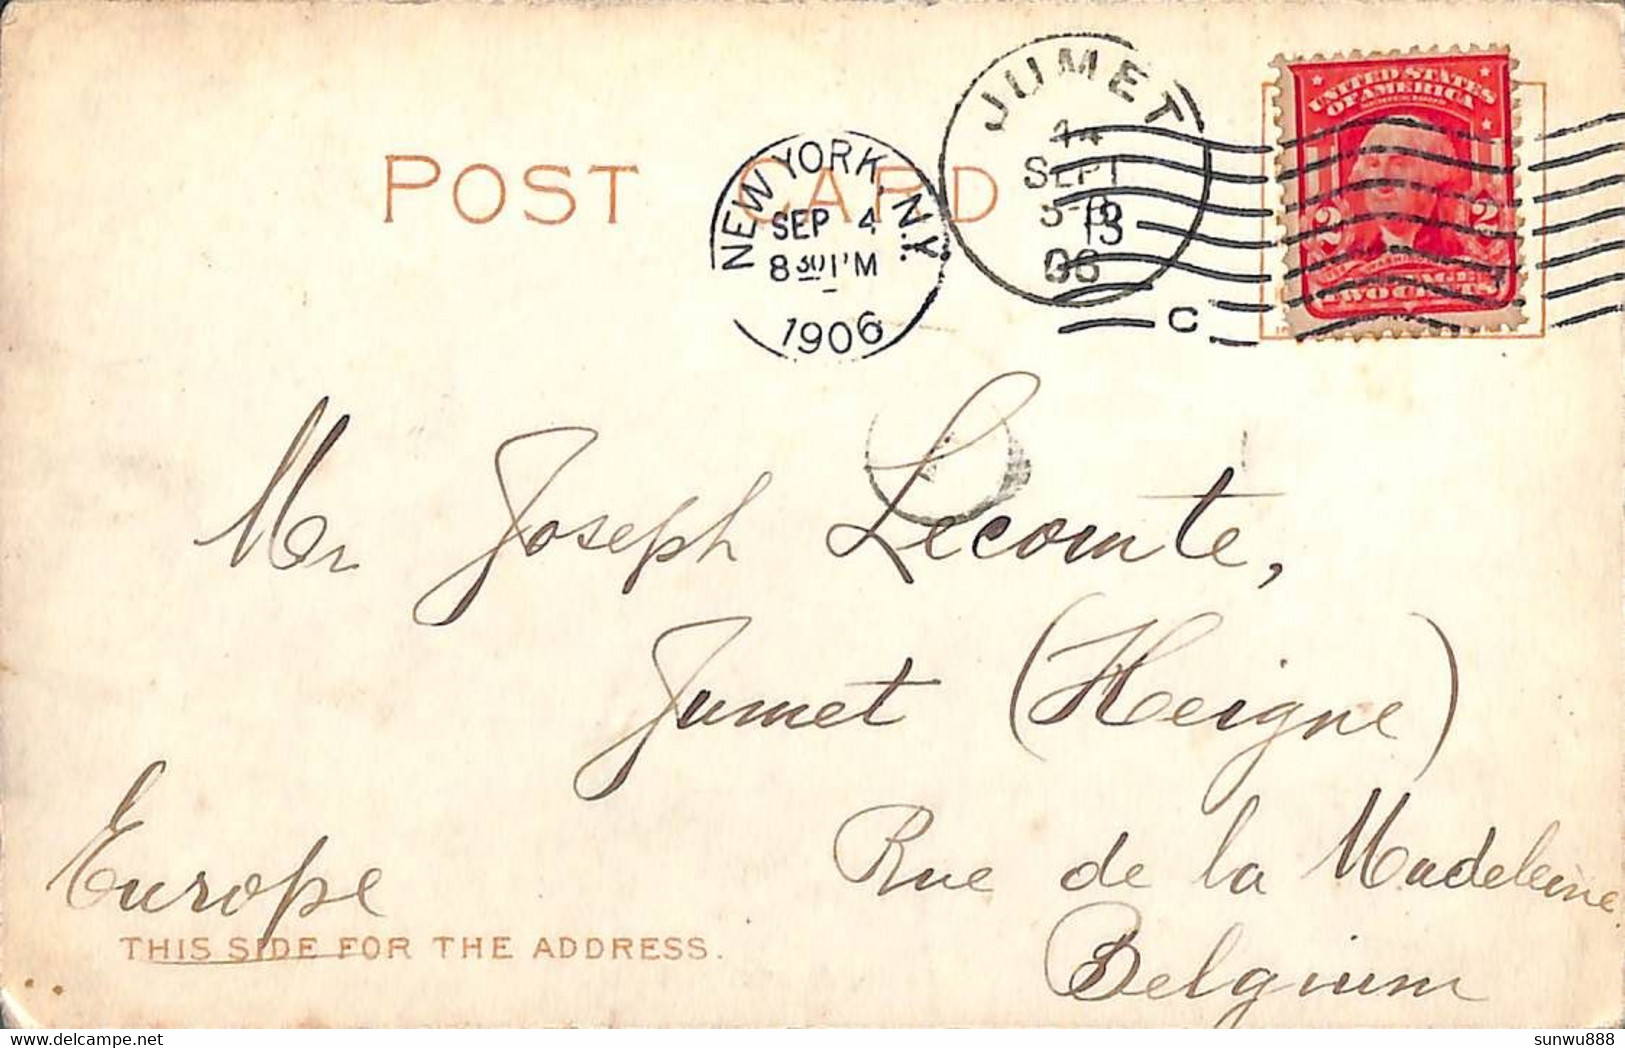 POST CARD
NEW YORK, N.Y.
SEP 4
8 30 PM
1906
JUMET
14
SEPT
13
06
C
UNITED STATES
OF AMERICA
2 2
POSTAGE
TWO CENTS
Mr Joseph Lecomte,
Jumet (Heigne)
Rue de la Madeleine
Europe
Belgium
THIS SIDE FOR THE ADDRESS.
sunwu888